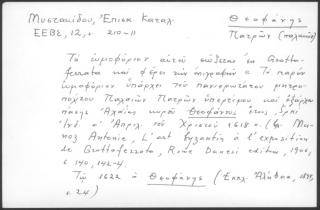 Μυστακίδου, Ἐπισκ. Καταλ.
ΕΕΒΣ, 12, 210-11
Θεοφάνης
Πατρῶν (παλαιῶν)
Τὸ ὠμοφόριον αὐτοῦ σώζεται ἐν Grotta-
ferrata καὶ φέρει τὴν ἐπιγραφήν: Τὸ παρὸν
ὠμοφόριον ὑπάρχει τοῦ πανιερωτάτου μητρο-
πολίτου Παλαιῶν Πατρῶν ὑπερτίμου καὶ ἐξάρχου
πάσης Ἀχαΐας κυροῦ Θεοφάνους ἔτος
Ἰνδ. α' Ἀπριλ. τοῦ Χριστοῦ 1618
Muñoz Antonio, L'art byzantin à l'exposition
de Grottaferrata, Rome Danesi editeur, 1906,
σ. 140, 142-4.
Τῷ 1622 ὁ Θεοφάνης (Ἐκκλ. Ἀλήθεια,
σ. 24)